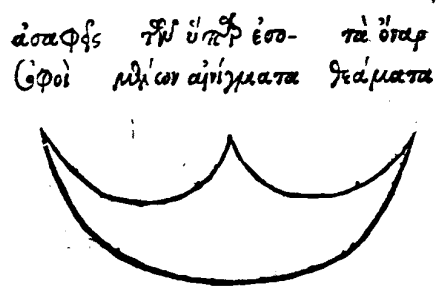 ἀσαφεῖς τῶν ὕπαρ ἐσο- τὰ ὄναρ
σοφοὶ μένων αἰνίγματα θεάματα